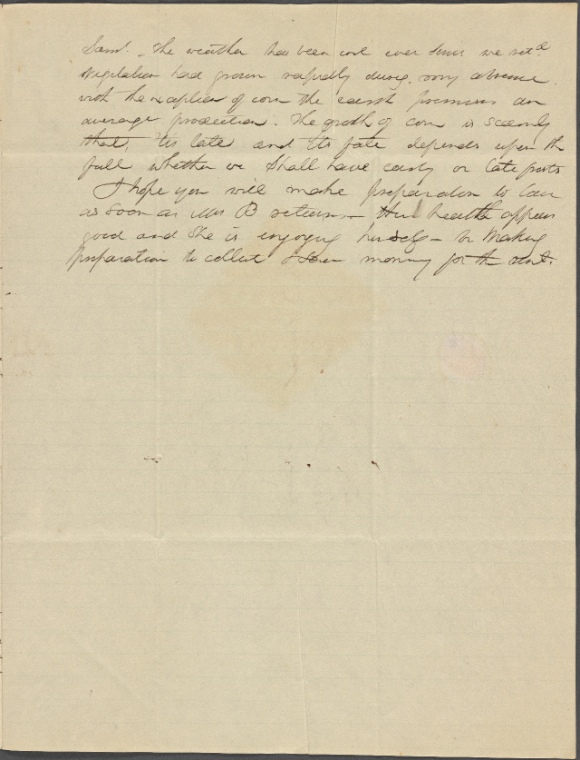 The weather has been cool ever since we ret^d
Vegetation had grown rapidly during my absence.
with the exception of corn the earth promises an
average production. The growth of corn is scarcely
that. Its late and its fate depends upon the
fall whether we shall have early or late frosts
I hope you will make preparation to
as soon as Mrs B returns— Her health appears
good and She is enjoying herself— In Making
preparation to collect money for the